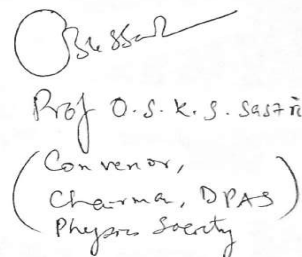 Prof O.S.K.S. Sastri
(Convenor,
Chairman, DPAS)
Physics Society